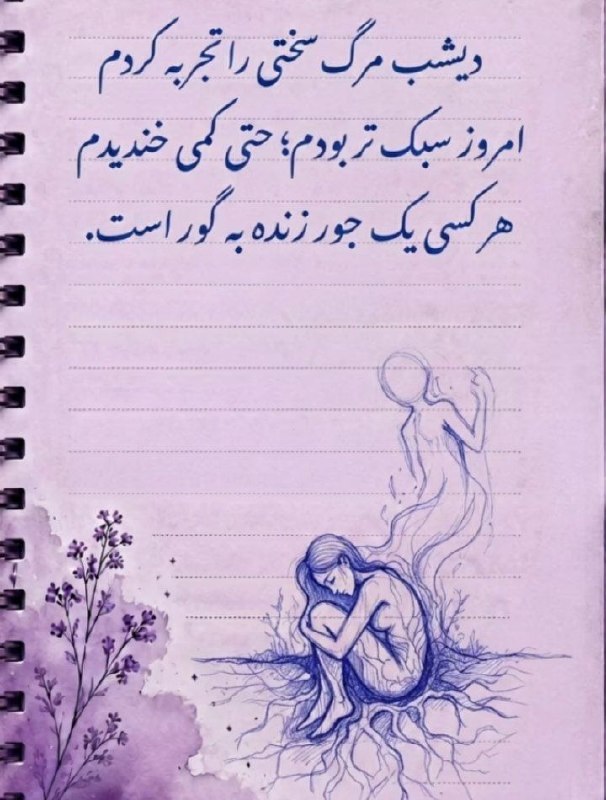 دیشب مرگ سختی را تجربه کردم
امروز سبک تر بودم؛ حتی کمی خندیدم
هر کسی یک جور زنده به گور است.